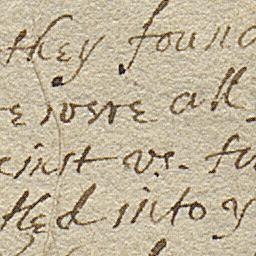 they foun
e were all
inst vs. fu
tled into y